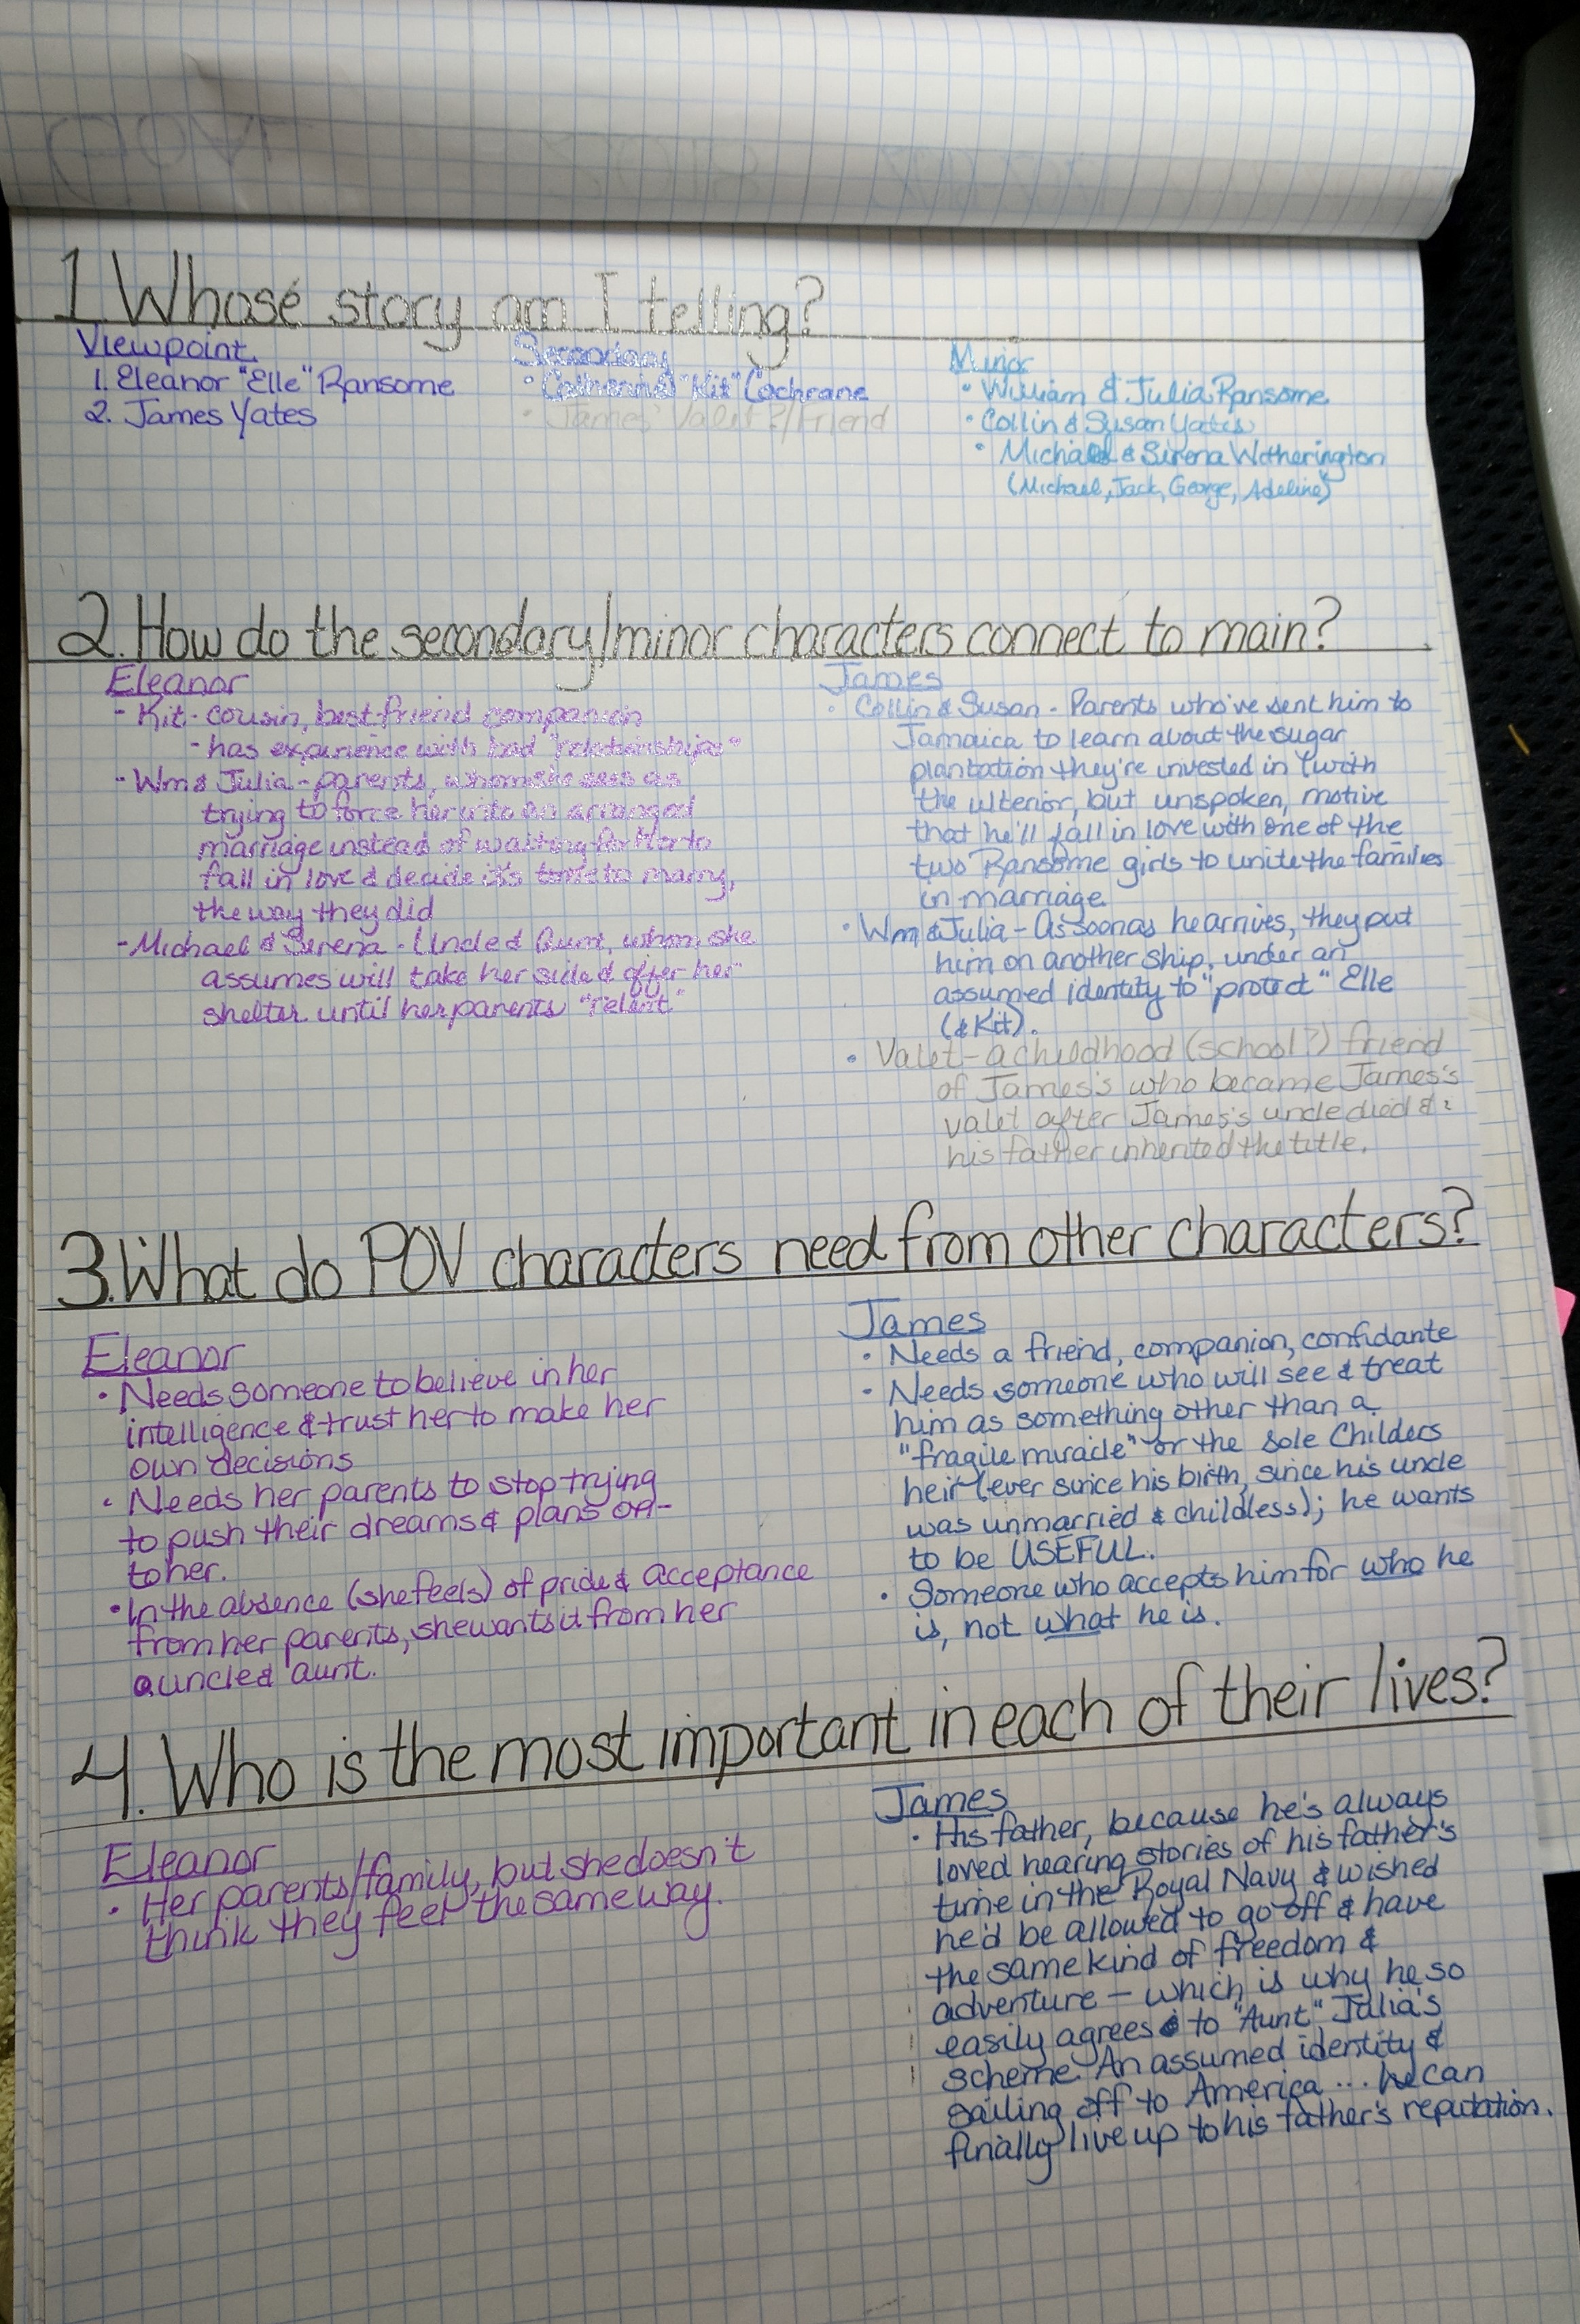 1. Whose story am I telling?
Viewpoint
1. Eleanor "Elle" Ransome
2. James Yates
Secondary
• "Kit" Cochrane
• James' Valet?/Friend
Minor
• William & Julia Ransome
• Collin & Susan Yates
• Michael & Serena Witherington
(Michael, Jack, George, Adeline)
2. How do the secondary/minor characters connect to main?
Eleanor
- Kit - cousin, best friend companion
- has experience with bad "relationships"
- Wm & Julia - parents, whom she sees as
trying to force her into an arranged
marriage instead of waiting for her to
fall in love & decide it's time to marry,
the way they did
- Michael & Serena - Uncle & Aunt, whom she
assumes will take her side & offer her
shelter until her parents "relent"
James
• Collin & Susan - Parents who've sent him to
Jamaica to learn about the sugar
plantation they're invested in (with
the ulterior, but unspoken, motive
that he'll fall in love with one of the
two Ransome girls to unite the families
in marriage.
• Wm & Julia - As soon as he arrives, they put
him on another ship, under an
assumed identity to "protect" Elle
(& Kit).
• Valet - a childhood (school?) friend
of James's who became James's
valet after James's uncle died &
his father inherited the title.
3. What do POV characters need from other characters?
Eleanor
• Needs someone to believe in her
intelligence & trust her to make her
own decisions
• Needs her parents to stop trying
to push their dreams & plans on-
to her.
• In the absence (she feels) of pride & acceptance
from her parents, she wants it from her
uncle & aunt.
James
• Needs a friend, companion, confidante
• Needs someone who will see & treat
him as something other than a
"fragile miracle" or the sole Childers
heir (ever since his birth, since his uncle
was unmarried & childless); he wants
to be USEFUL.
• Someone who accepts him for who he
is, not what he is.
4. Who is the most important in each of their lives?
Eleanor
• Her parents/family, but she doesn't
think they feel the same way.
James
• His father, because he's always
loved hearing stories of his father's
time in the Royal Navy & wished
he'd be allowed to go off & have
the same kind of freedom &
adventure - which is why he so
easily agrees to "Aunt" Julia's
scheme. An assumed identity &
sailing off to America... he can
finally live up to his father's reputation.